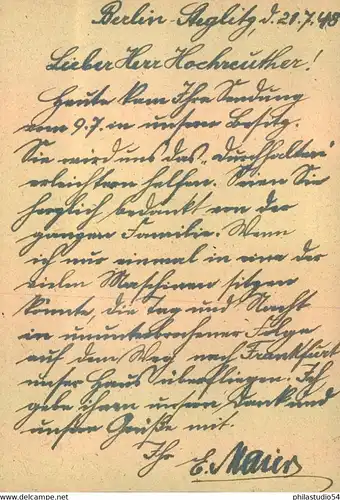 Berlin-Steglitz, d. 21.7.48
Lieber Herr Hochreuther!
Heute kam Ihre Sendung
vom 9.7. in unseren Besitz.
Sie wird uns das „Durchhalten“
erleichtern helfen. Seien Sie
herzlich bedankt von der
ganzen Familie. Wenn
ich nur einmal in eine der
vielen Maschinen sitzen
könnte, die Tag und Nacht
in ununterbrochener Folge
auf dem Weg nach Frankfurt
unser Haus überfliegen. Ich
gebe ihnen unsern Dank und
unsre Grüße mit.
Ihr E. Maier
www.delcampe.net
philatelistik54